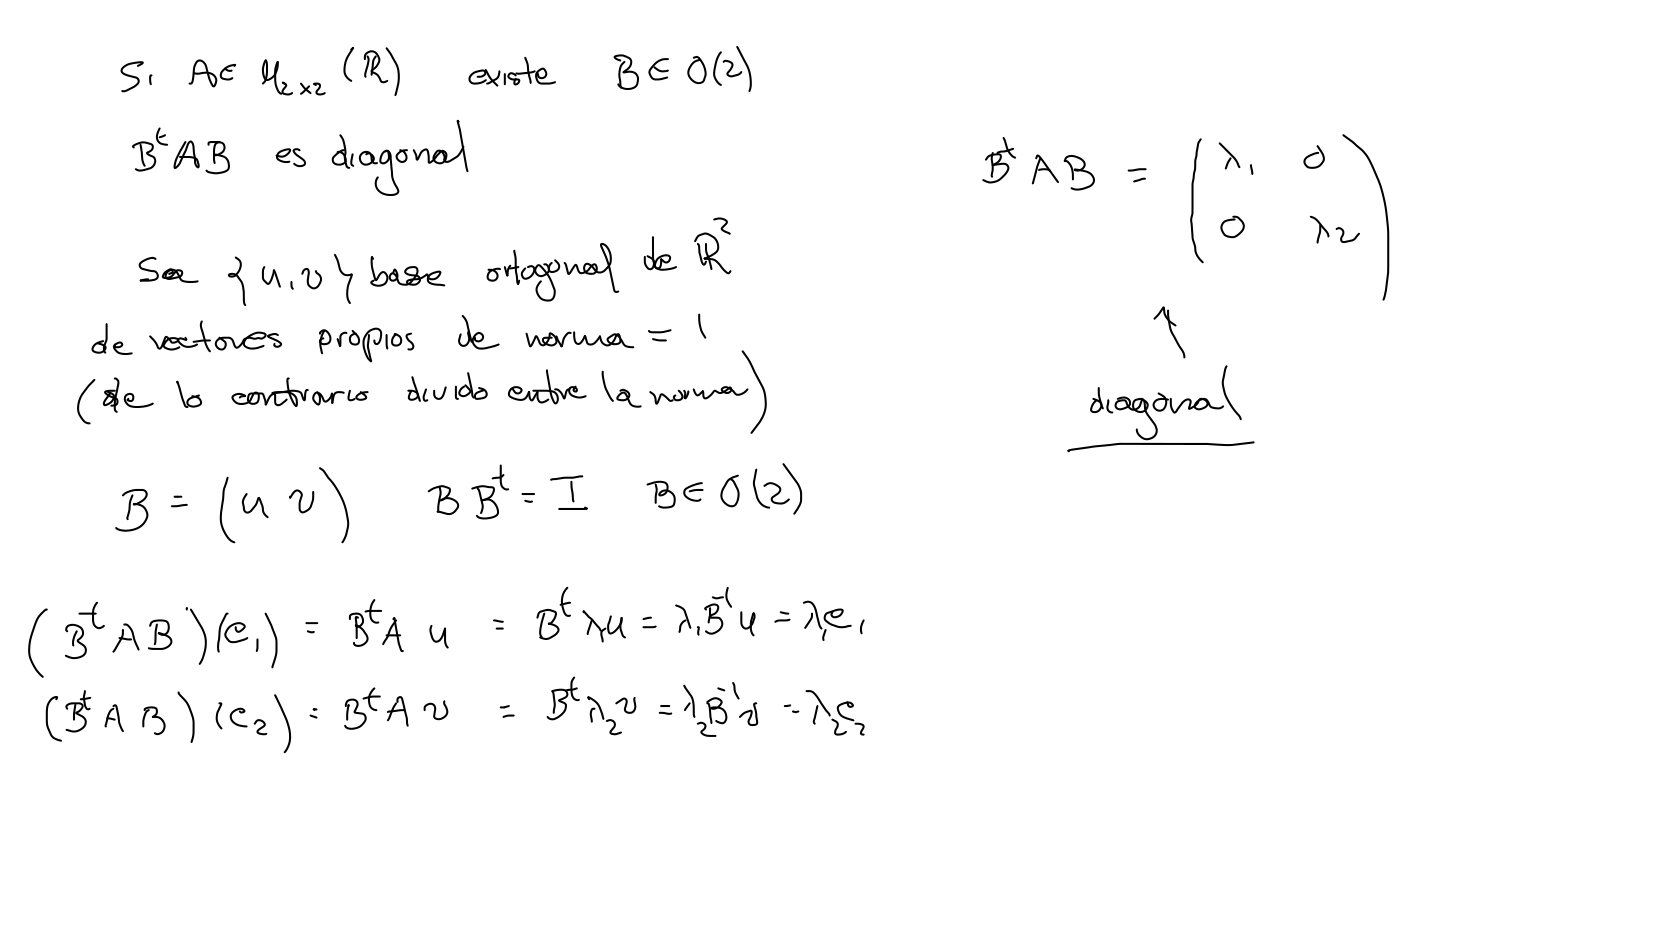 Si A∈ M₂ₓ₂ (ℝ) existe B∈ O(2)
BᵗAB es diagonal
Sea {u,v} base ortogonal de ℝ²
de vectores propios de norma = 1
(de lo contrario divido entre la norma)
B = (u v) B Bᵗ = I B∈ O(2)
(BᵗAB)(e₁) = BᵗA u = Bᵗ λ₁u = λ₁B⁻¹u = λ₁e₁
(BᵗAB)(e₂) = BᵗA v = Bᵗ λ₂v = λ₂B⁻¹v = λ₂e₂
BᵗAB = (λ₁ 0
0 λ₂)
diagonal